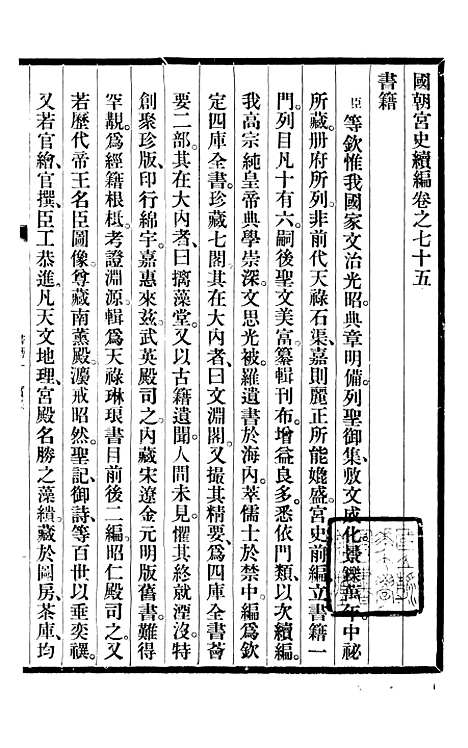 國朝宮史續編卷之七十五
書籍
臣等欽惟我國家文治光昭典章明備列聖御集敷文成化景鑠萬年中祕
所藏册府所列非前代天祿石渠嘉則麗正所能媲盛宮史前編立書籍一
門列目凡十有六嗣後聖文美富纂輯刊布增益良多悉依門類以次續編
我高宗純皇帝典學崇深文思光被羅遺書於海內萃儒士於禁中編爲欽
定四庫全書珍藏七閣其在大內者曰文淵閣又撮其精要爲四庫全書薈
要二部其在大內者曰摛藻堂又以古籍遺聞人間未見懼其終就湮沒特
創聚珍版印行綿宇嘉惠來茲武英殿司之內藏宋遼金元明版舊書難得
罕覯爲經籍根柢考證淵源輯爲天祿琳琅書目前後二編昭仁殿司之又
若歷代帝王名臣圖像尊藏南薰殿瀍戒昭然聖記御詩等百世以垂奕禩
又若官繪官撰臣工恭進凡天文地理宮殿名勝之藻繢藏於圖房茶庫均